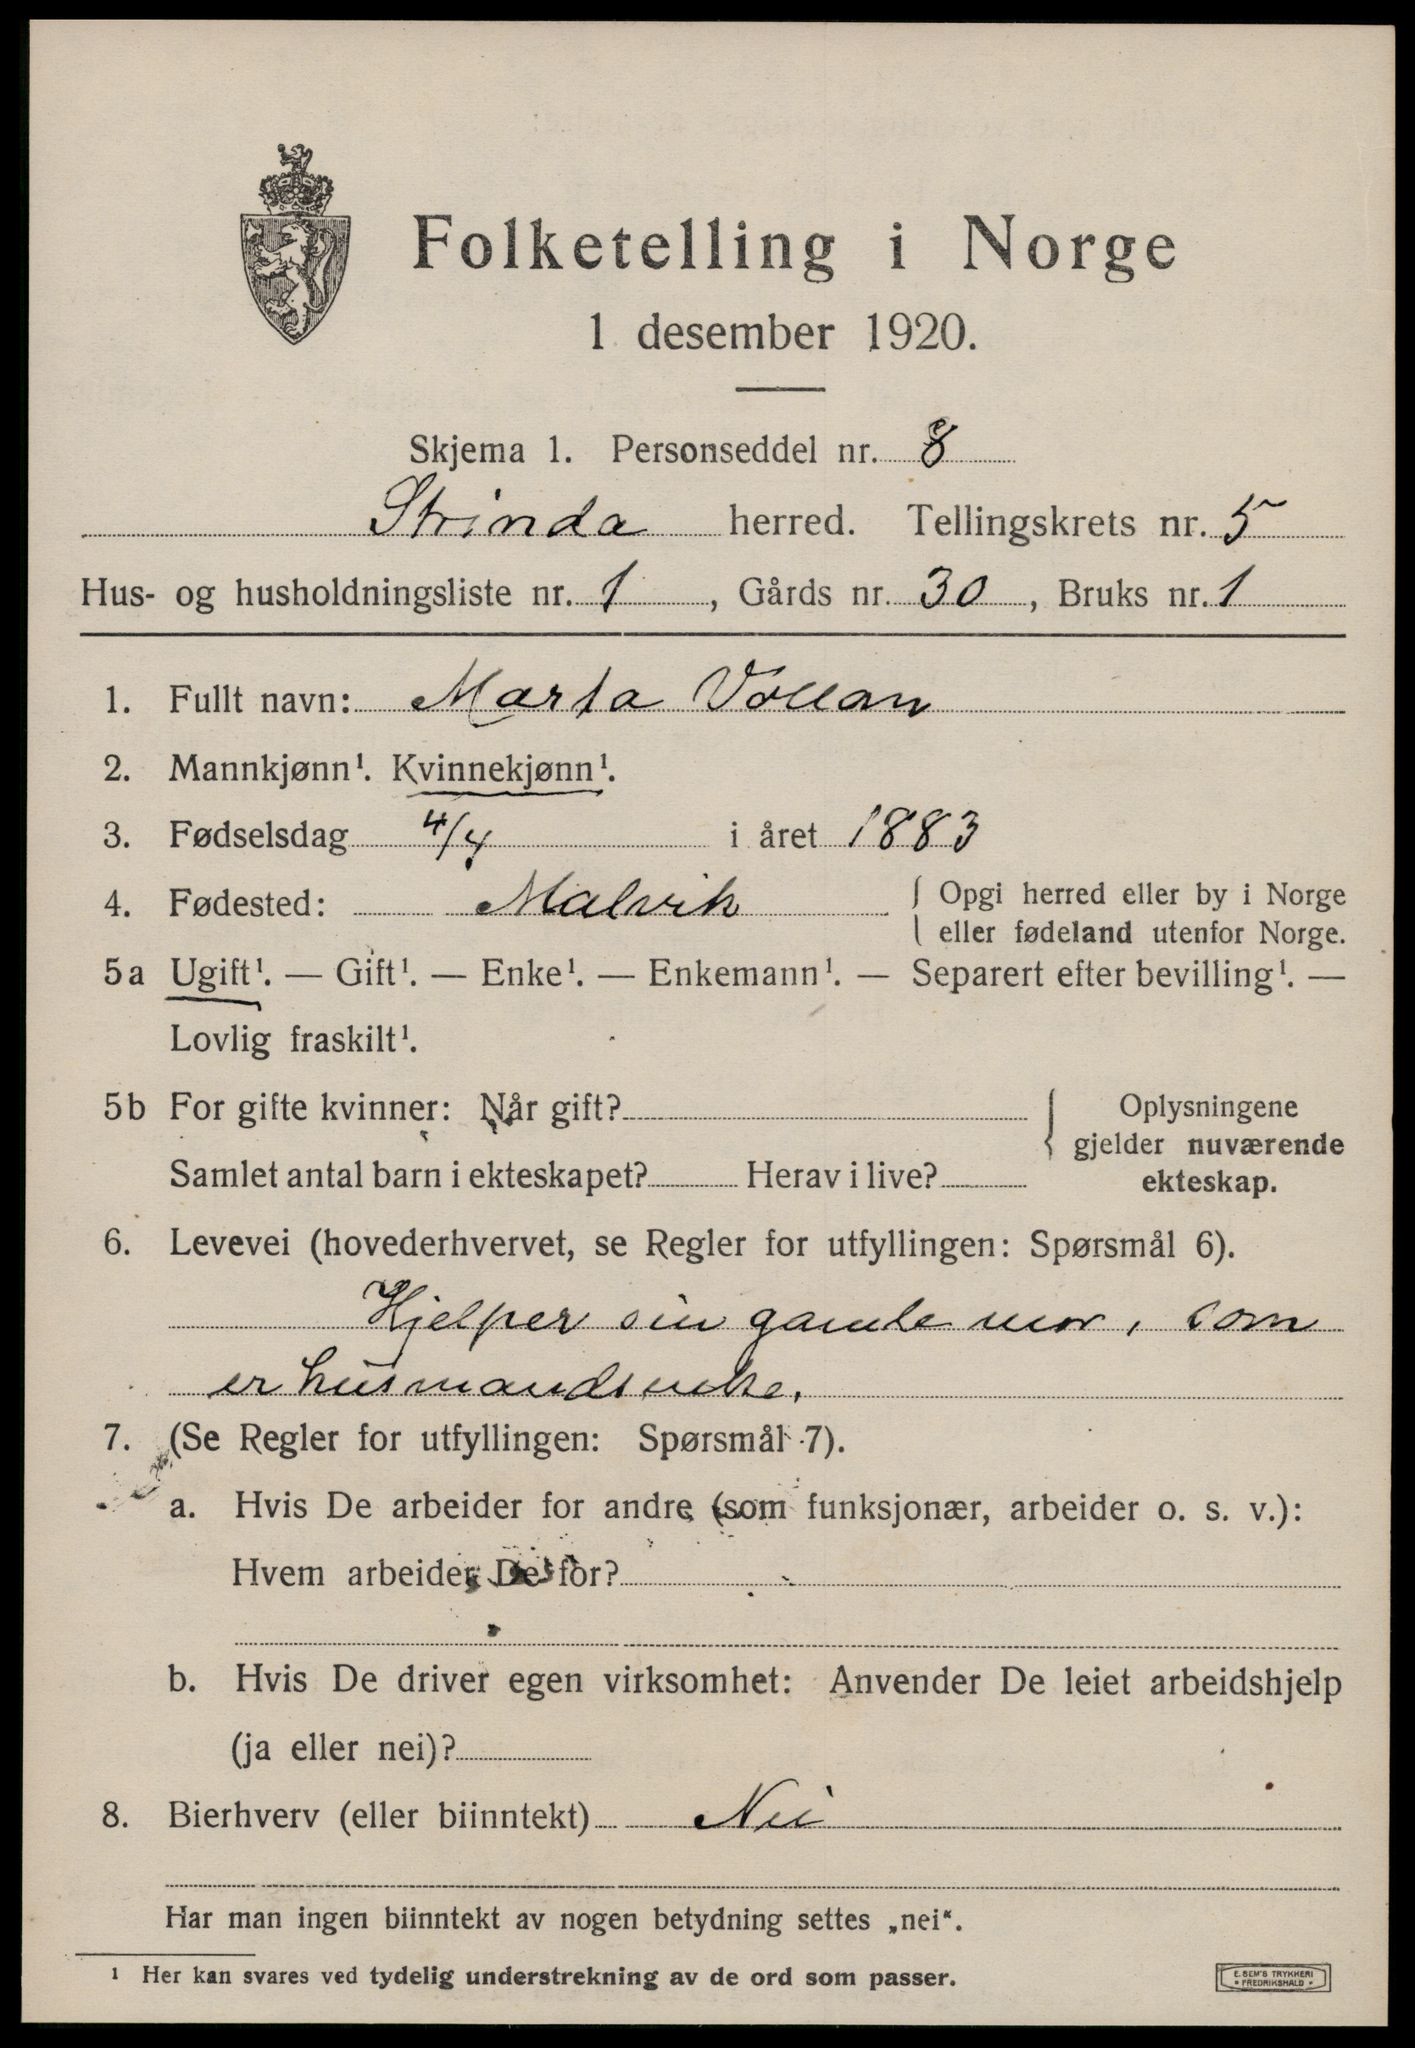 Folketelling i Norge
1 desember 1920.
Skjema 1. Personseddel nr. 8
Strinda herred. Tellingskrets nr. 5
Hus- og husholdningsliste nr. 1, Gårds nr. 30, Bruks nr. 1
1. Fullt navn: Marta Vollan
2. Mannkjønn¹. Kvinnekjønn¹.
3. Fødselsdag 4/4 i året 1883
4. Fødested: Malvik { Opgi herred eller by i Norge
eller fødeland utenfor Norge.
5a Ugift¹. — Gift¹. — Enke¹. — Enkemann¹. — Separert efter bevilling¹. —
Lovlig fraskilt¹.
5b For gifte kvinner: Når gift? { Oplysningene
gjelder nuværende
Samlet antal barn i ekteskapet? Herav i live? ekteskap.
6. Levevei (hovederhvervet, se Regler for utfyllingen: Spørsmål 6).
Hjelper sin gamle mor, som
er husmandsenke.
7. (Se Regler for utfyllingen: Spørsmål 7).
a. Hvis De arbeider for andre (som funksjonær, arbeider o. s. v.):
Hvem arbeider De for?
b. Hvis De driver egen virksomhet: Anvender De leiet arbeidshjelp
(ja eller nei)?
8. Bierhverv (eller biinntekt) Nei
Har man ingen biinntekt av nogen betydning settes „nei“.
¹ Her kan svares ved tydelig understrekning av de ord som passer.
E. SEM'S TRYKKERI
FREDRIKSHALD